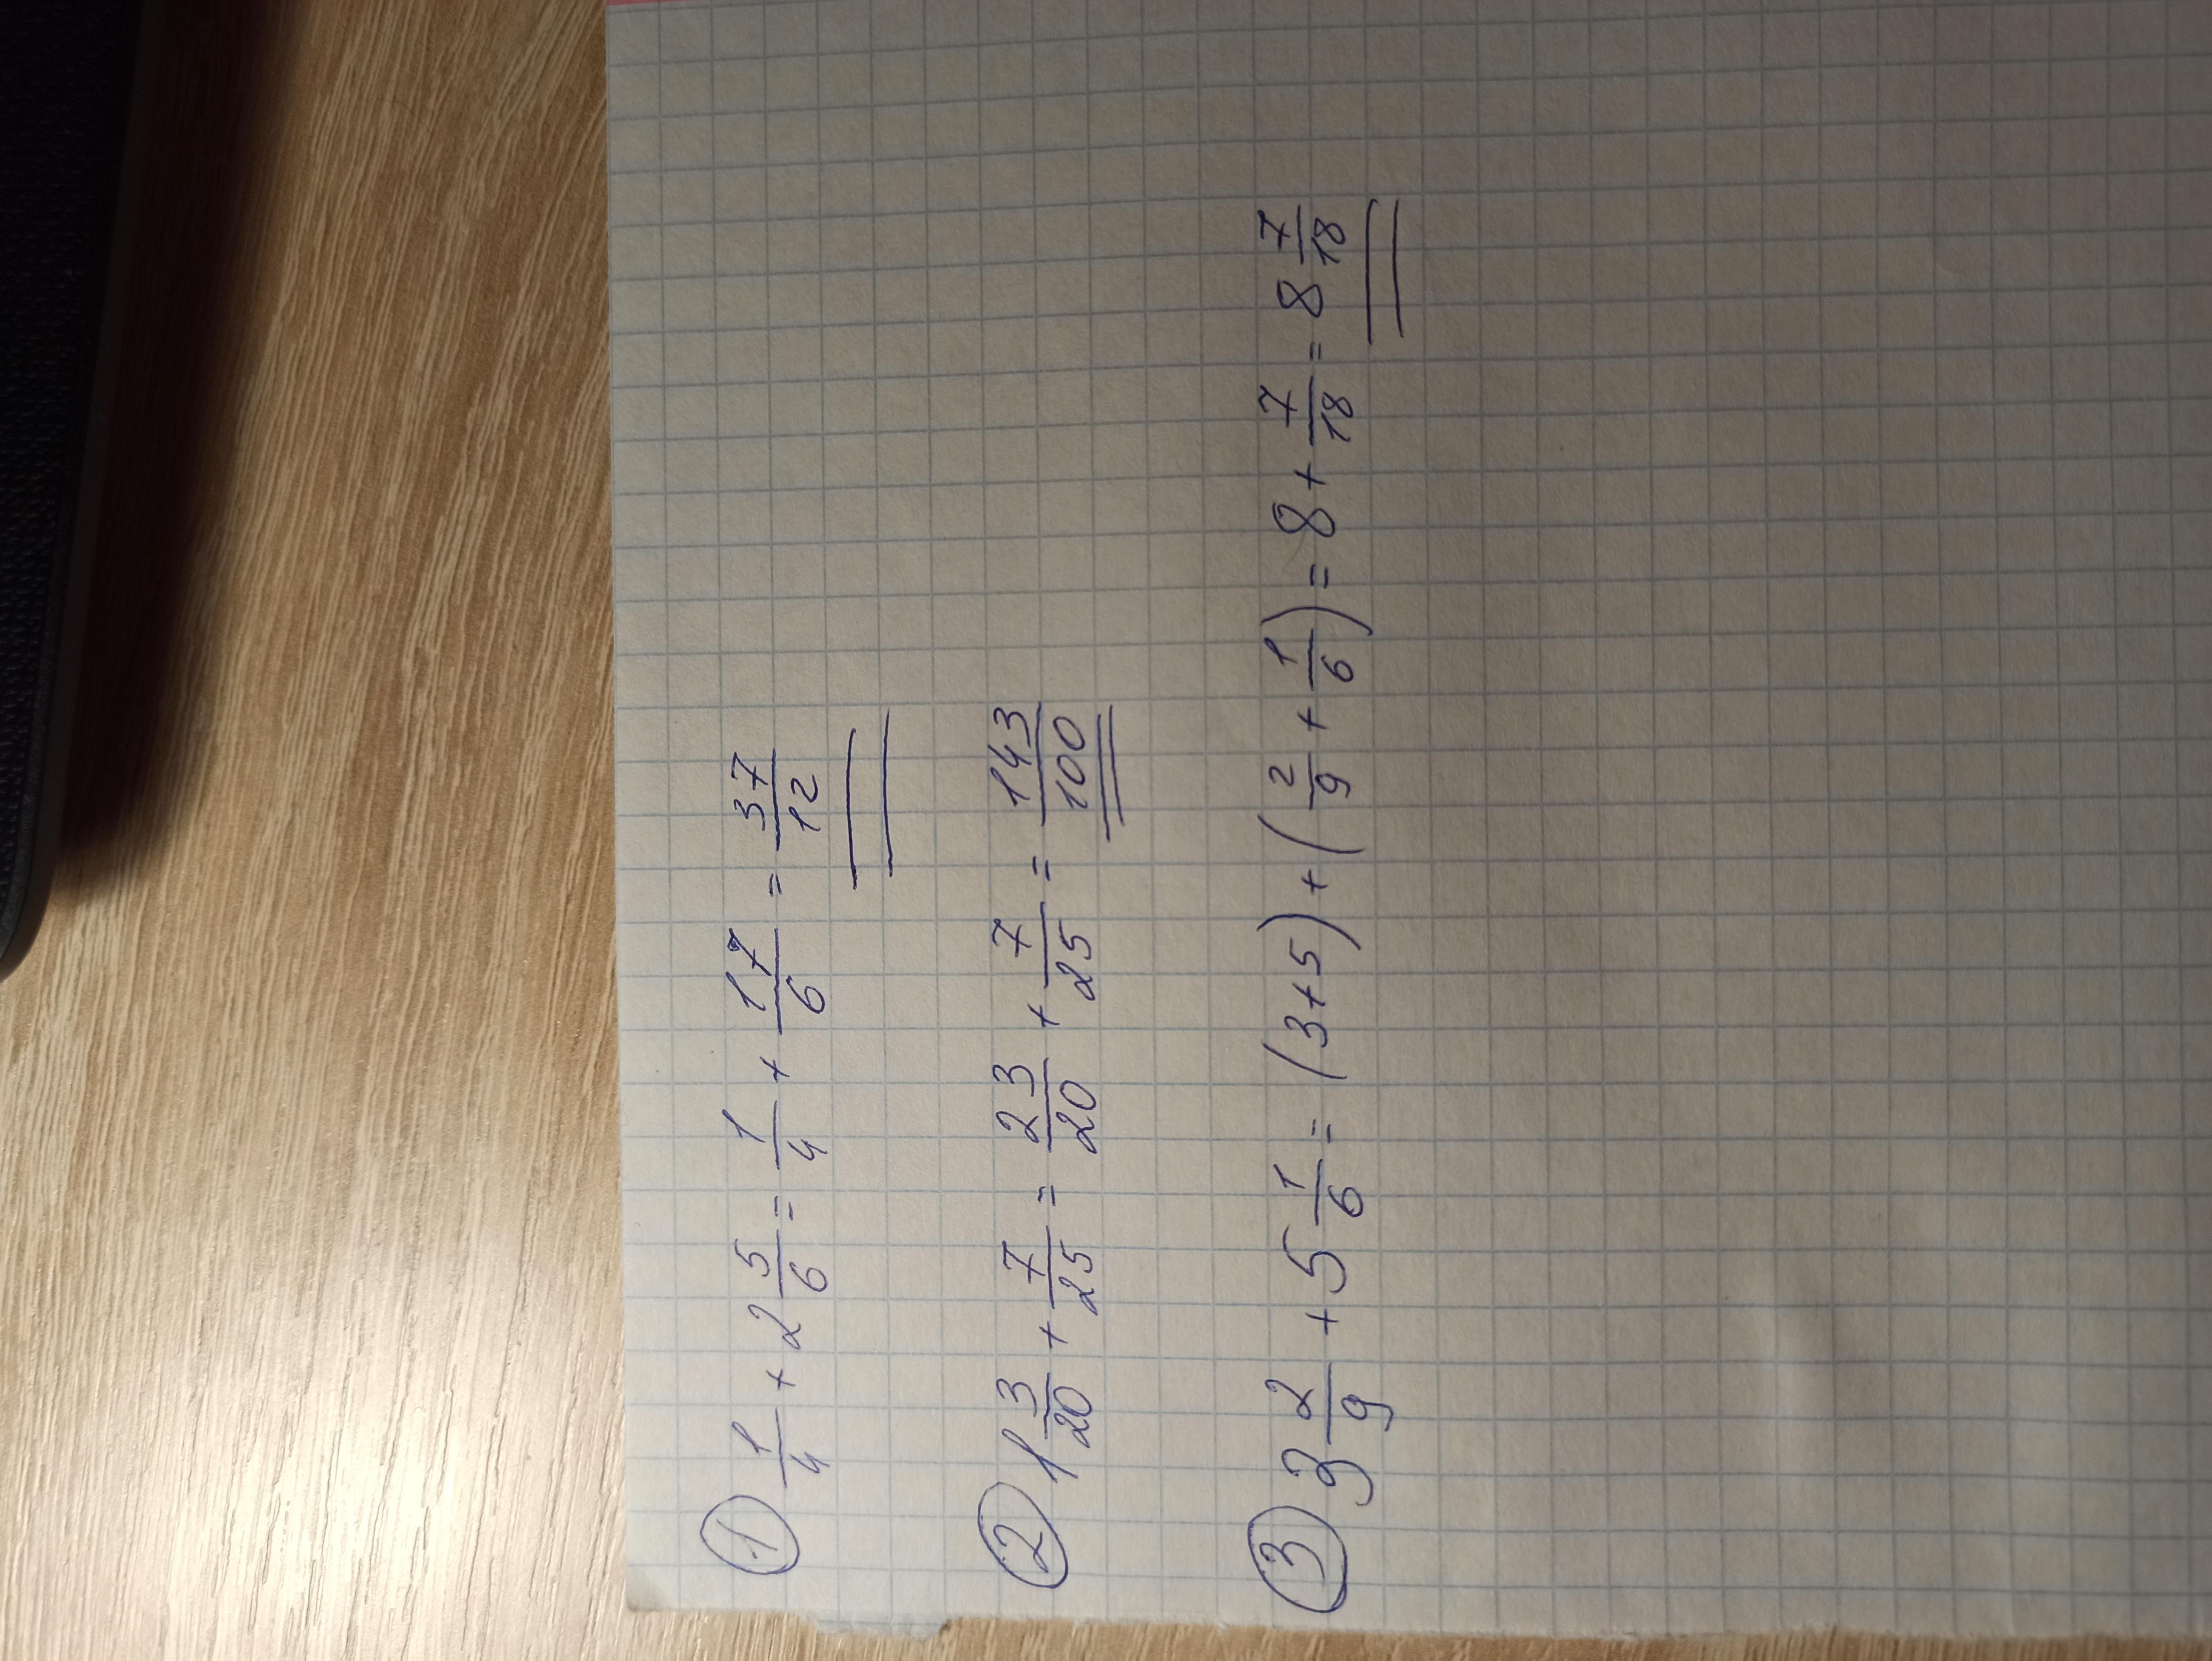 ① 1/4 + 2 5/6 = 1/4 + 17/6 = 37/12
② 1 3/20 + 7/25 = 23/20 + 7/25 = 143/100
③ 3 2/9 + 5 1/6 = (3+5) + (2/9 + 1/6) = 8 + 7/18 = 8 7/18